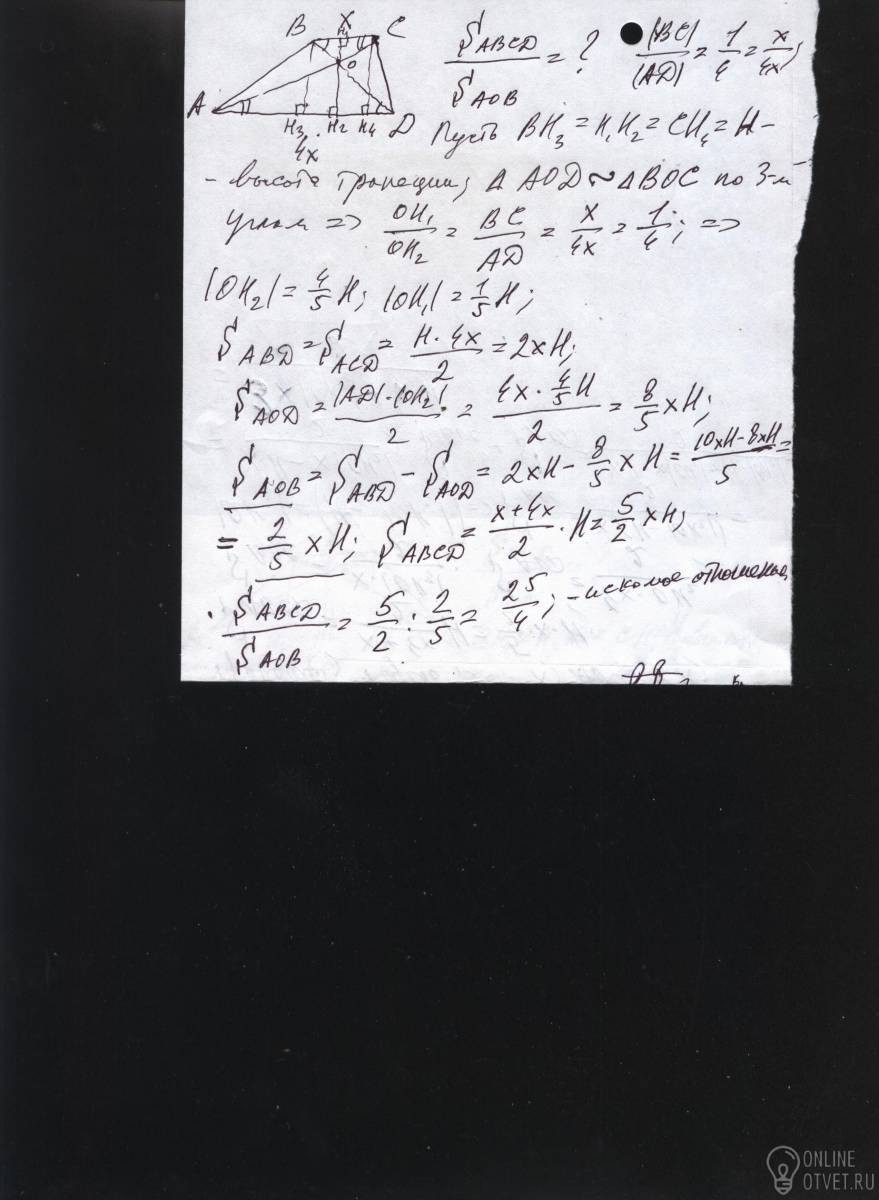 B x H₁ C
O
A H₃ H₂ H₄ D
4x
S_ABCD / S_AOB = ? |BC| / |AD| = 1/4 = x/4x;
Пусть BH₃ = H₁H₂ = CH₄ = H –
– высота трапеции; Δ AOD ~ Δ BOC по 3-м
углам => OH₁/OH₂ = BC/AD = x/4x = 1/4; =>
|OH₂| = 4/5 H; |OH₁| = 1/5 H;
S_ABD = S_ACD = H·4x / 2 = 2xH;
S_AOD = |AD|·|OH₂| / 2 = 4x · 4/5 H / 2 = 8/5 xH;
S_AOB = S_ABD – S_AOD = 2xH – 8/5 xH = 10xH – 8xH / 5 =
= 2/5 xH; S_ABCD = x+4x / 2 · H = 5/2 xH;
S_ABCD / S_AOB = 5/2 : 2/5 = 25/4; – искомое отношение
ONLINE
OTVET.RU